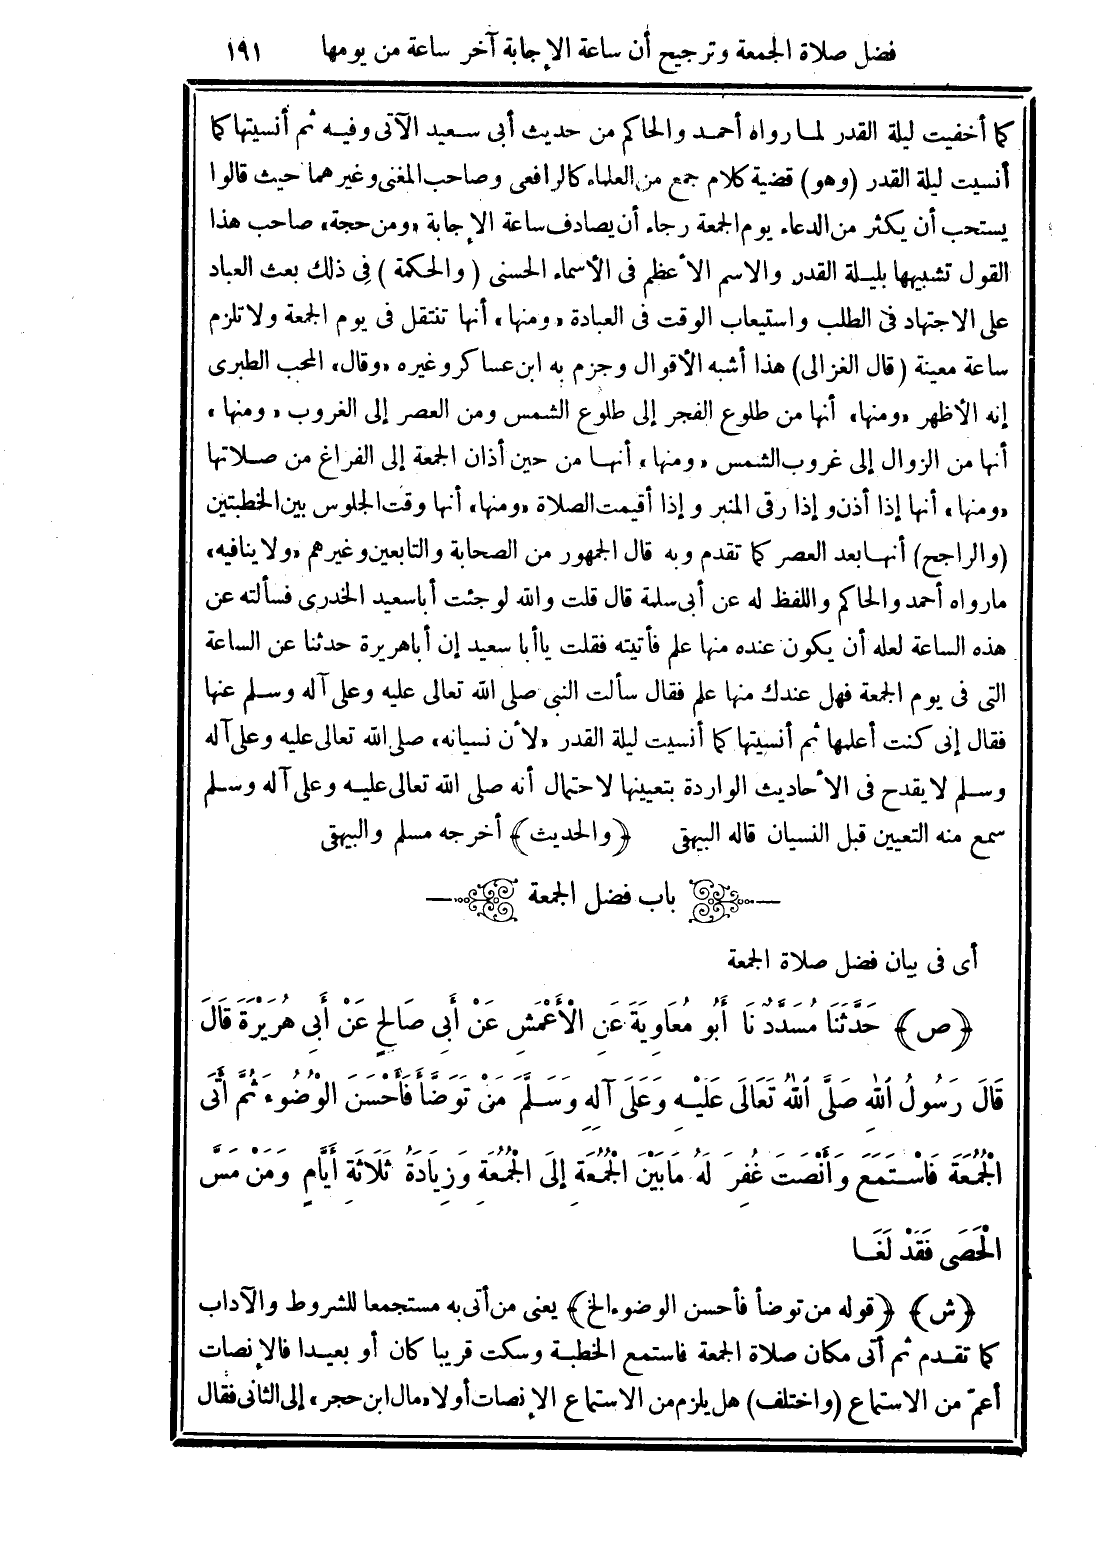 فضل صلاة الجمعة وترجيح أن ساعة الإجابة آخر ساعة من يومها ١٩١
كما أخفيت ليلة القدر لما رواه أحمد والحاكم من حديث أبى سعيد الآتى وفيه ثم أنسيتها كما
أنسيت ليلة القدر (وهو) قضية كلام جمع من العلماء كالرافعى وصاحب المغنى وغيرهما حيث قالوا
يستحب أن يكثر من الدعاء يوم الجمعة رجاء أن يصادف ساعة الإجابة «ومن حجة» صاحب هذا
القول تشبيهها بليلة القدر والاسم الأعظم فى الأسماء الحسنى (والحكمة) فى ذلك بعث العباد
على الاجتهاد فى الطلب واستيعاب الوقت فى العبادة «ومنها» أنها تنتقل فى يوم الجمعة ولا تلزم
ساعة معينة (قال الغزالى) هذا أشبه الأقوال وجزم به ابن عساكر وغيره «وقال» المحب الطبرى
إنه الأظهر «ومنها» أنها من طلوع الفجر إلى طلوع الشمس ومن العصر إلى الغروب «ومنها»
أنها من الزوال إلى غروب الشمس «ومنها» أنها من حين أذان الجمعة إلى الفراغ من صلاتها
«ومنها» أنها إذا أذن وإذا رقى المنبر وإذا أقيمت الصلاة «ومنها» أنها وقت الجلوس بين الخطبتين
(والراجح) أنها بعد العصر كما تقدم وبه قال الجمهور من الصحابة والتابعين وغيرهم «ولا ينافيه»
مارواه أحمد والحاكم واللفظ له عن أبى سلمة قال قلت والله لو جئت أبا سعيد الخدرى فسألته عن
هذه الساعة لعله أن يكون عنده منها علم فأتيته فقلت يا أبا سعيد إن أبا هريرة حدثنا عن الساعة
التى فى يوم الجمعة فهل عندك منها علم فقال سألت النبى صلى الله تعالى عليه وعلى آله وسلم عنها
فقال إنى كنت أعلمها ثم أنسيتها كما أنسيت ليلة القدر «لأن نسيانه» صلى الله تعالى عليه وعلى آله
وسلم لا يقدح فى الأحاديث الواردة بتعيينها لاحتمال أنه صلى الله تعالى عليه وعلى آله وسلم
سمع منه التعيين قبل النسيان قاله البيهقى ﴿والحديث﴾ أخرجه مسلم والبيهقى
باب فضل الجمعة
أى فى بيان فضل صلاة الجمعة
﴿ص﴾ حَدَّثَنَا مُسَدَّدٌ نَا أَبُو مُعَاوِيَةَ عَنِ الْأَعْمَشِ عَنْ أَبِى صَالِحٍ عَنْ أَبِى هُرَيْرَةَ قَالَ
قَالَ رَسُولُ اللهِ صَلَّى اللهُ تَعَالَى عَلَيْهِ وَعَلَى آلِهِ وَسَلَّمَ مَنْ تَوَضَّأَ فَأَحْسَنَ الْوُضُوءَ ثُمَّ أَتَى
الْجُمُعَةَ فَاسْتَمَعَ وَأَنْصَتَ غُفِرَ لَهُ مَا بَيْنَ الْجُمُعَةِ إِلَى الْجُمُعَةِ وَزِيَادَةُ ثَلَاثَةِ أَيَّامٍ وَمَنْ مَسَّ
الْحَصَى فَقَدْ لَغَا
﴿ش﴾ ﴿قوله من توضأ فأحسن الوضوء الخ﴾ يعنى من أتى به مستجمعا للشروط والآداب
كما تقدم ثم أتى مكان صلاة الجمعة فاستمع الخطبة وسكت قريبا كان أو بعيدا فالإنصات
أعمّ من الاستماع (واختلف) هل يلزم من الاستماع الإنصات أو لا «مال ابن حجر» إلى الثانى فقال